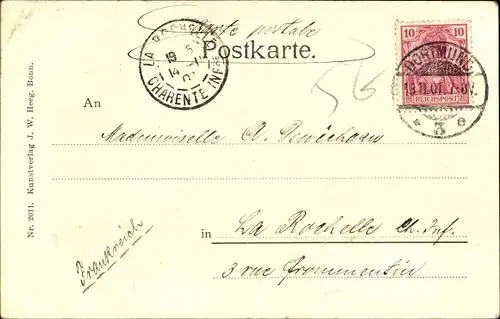 Carte postale
Postkarte.
LA ROCHELLE
CHARENTE INFRE
10 10
REICHSPOST
DORTMUND
13.11.01. 7-8V.
* 3 e
56
An
Mademoiselle A.
in La Rochelle Ch. Inf.
3 rue Frommentin
Frankreich
Nr. 2011. Kunstverlag J. W. Heeg, Bonn.